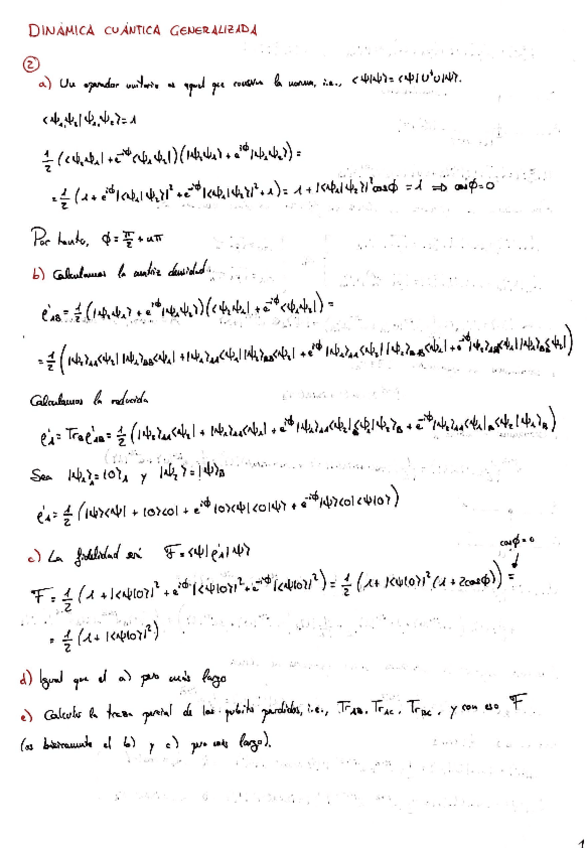 DINÁMICA CUÁNTICA GENERALIZADA
②
a) Un operador unitario es aquel que conserva la norma, i.e., <ψ|ψ> = <ψ|U†U|ψ>.
<ψ₁,ψ₂|ψ₁,ψ₂> = 1
1/2 (<ψ₂ψ₁| + e^{-iϕ}<ψ₁ψ₂|)(|ψ₂ψ₁> + e^{iϕ}|ψ₁ψ₂>) =
= 1/2 (1 + e^{iϕ}|<ψ₁|ψ₂>|² + e^{-iϕ}|<ψ₁|ψ₂>|² + 1) = 1 + |<ψ₁|ψ₂>|² cosϕ = 1 ⇒ cosϕ = 0
Por tanto, ϕ = π/2 + nπ
b) Calculamos la matriz densidad.
ρ'_{AB} = 1/2 (|ψ₂ψ₁> + e^{iϕ}|ψ₁ψ₂>)(<ψ₂ψ₁| + e^{-iϕ}<ψ₁ψ₂|) =
= 1/2 (|ψ₂>_{AA}<ψ₂| |ψ₁>_{BB}<ψ₁| + |ψ₁>_{AA}<ψ₁| |ψ₂>_{BB}<ψ₂| + e^{iϕ}|ψ₁>_{AA}<ψ₂| |ψ₂>_{BB}<ψ₁| + e^{-iϕ}|ψ₂>_{AA}<ψ₁| |ψ₁>_{BB}<ψ₂|)
Calculamos la reducida
ρ'_A = Tr_B ρ'_{AB} = 1/2 (|ψ₂>_{AA}<ψ₂| + |ψ₁>_{AA}<ψ₁| + e^{iϕ}|ψ₁>_{AA}<ψ₂| _B<ψ₁|ψ₂>_B + e^{-iϕ}|ψ₂>_{AA}<ψ₁| _B<ψ₂|ψ₁>_B)
Sea |ψ₁>_A = |0>_A y |ψ₂> = |ψ>_B
ρ'_A = 1/2 (|ψ><ψ| + |0><0| + e^{iϕ}|0><ψ|<0|ψ> + e^{-iϕ}|ψ><0|<ψ|0>)
c) La fidelidad será F = <ψ|ρ'_A|ψ>
cosϕ = 0
F = 1/2 (1 + |<ψ|0>|² + e^{iϕ}|<ψ|0>|² + e^{-iϕ}|<ψ|0>|²) = 1/2 (1 + |<ψ|0>|² (1 + 2cosϕ)) =
= 1/2 (1 + |<ψ|0>|²)
d) Igual que el a) pero más largo
e) Calculas la traza parcial de los qubits perdidos, i.e., Tr_{AB}, Tr_{AC}, Tr_{BC}, y con eso F
(es básicamente el b) y c) pero más largo).
1